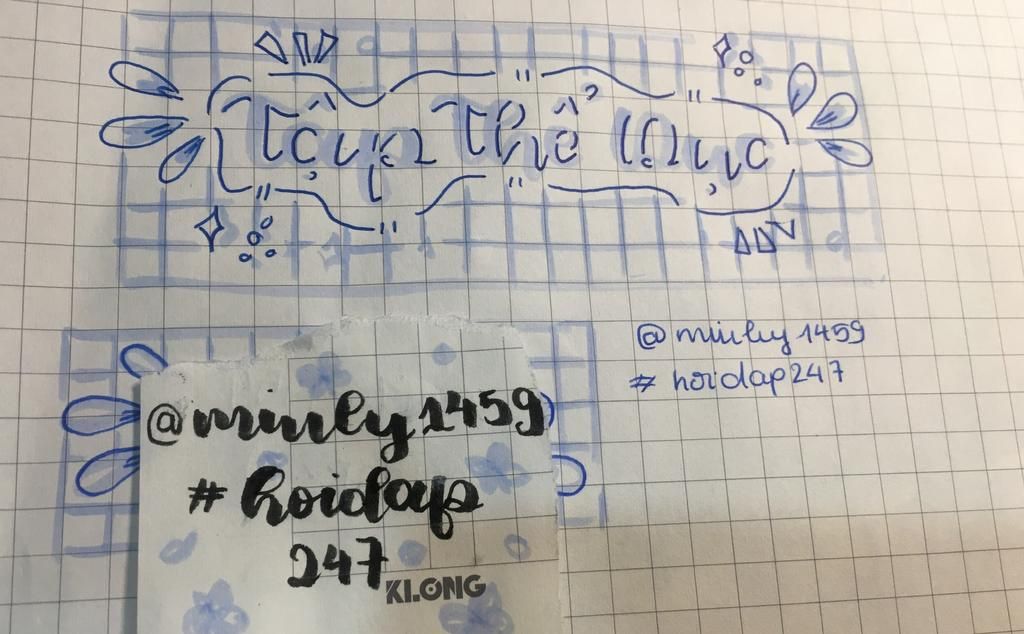 Tập Thể Dục
@minly1459
# hoidap247
@minly1459
# hoidap
247
KLONG